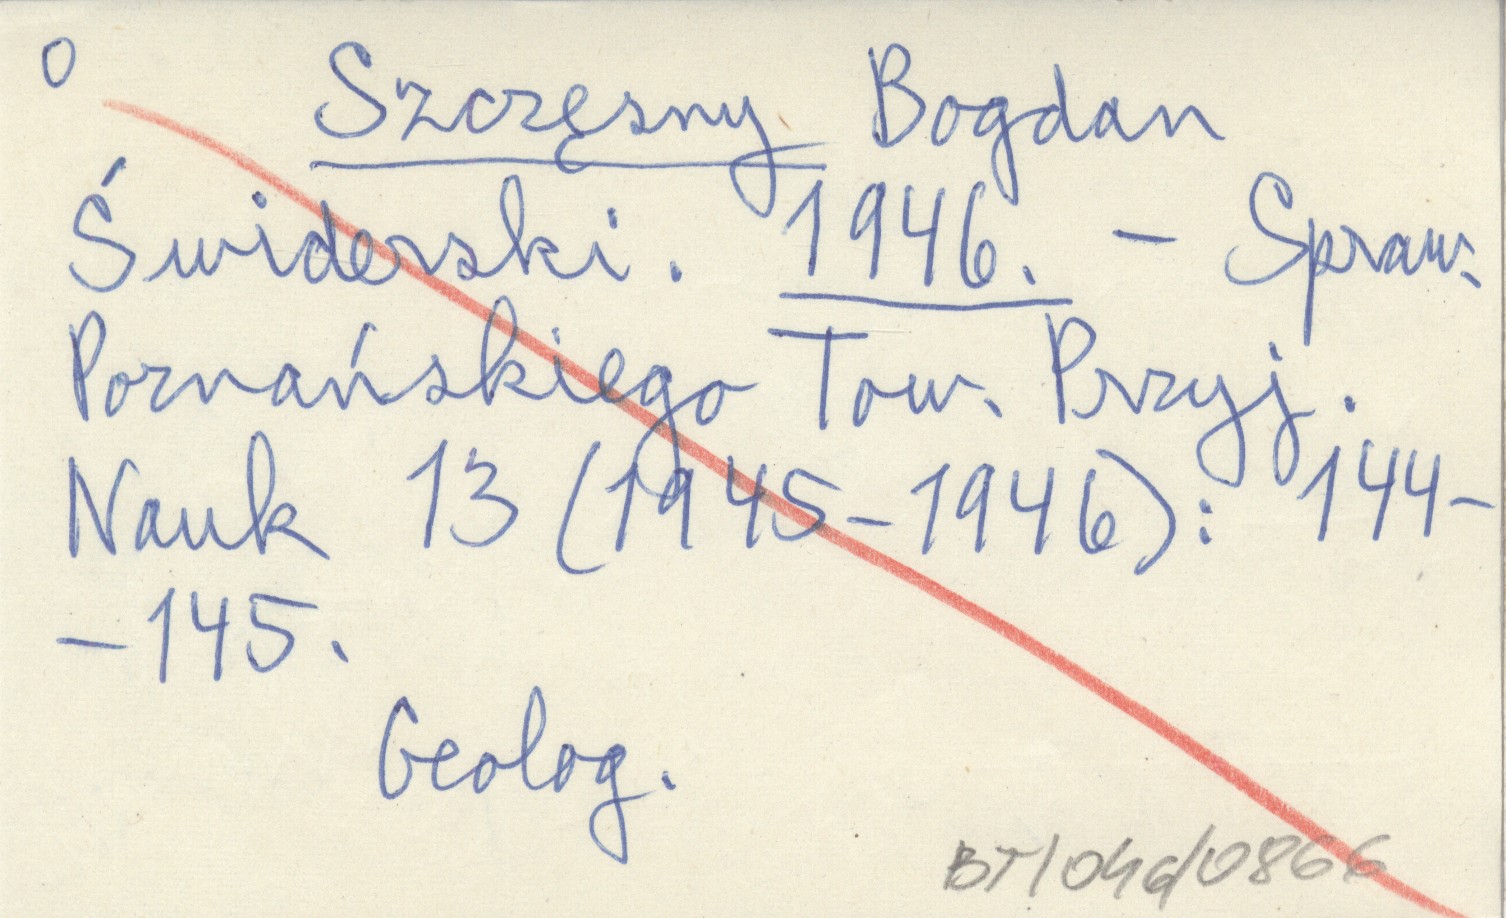 0
Szczęsny Bogdan
Świderski. 1946. - Spraw.
Poznańskiego Tow. Przyj.
Nauk 13 (1945-1946): 144-
-145.
Geolog.
BT/046/0866